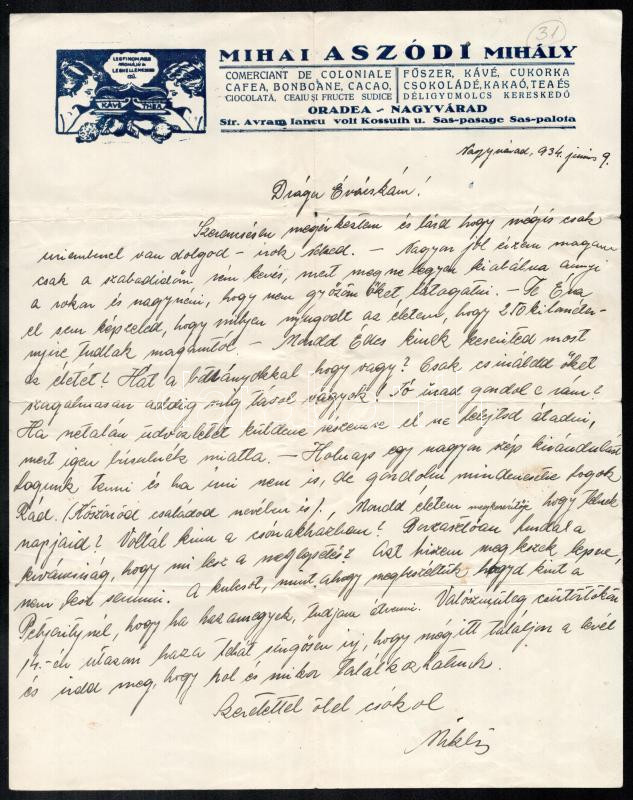 31
LEGFINOMABB
AROMÁJÚ A
LEGKELLEMESEBB
ÍZŰ.
KÁVÉ THEA
MIHAI ASZÓDI MIHÁLY
COMERCIANT DE COLONIALE
CAFEA, BONBOANE, CACAO,
CIOCOLATĂ, CEAIU ȘI FRUCTE SUDICE
FŰSZER, KÁVÉ, CUKORKA
CSOKOLÁDÉ, KAKAÓ, TEA ÉS
DÉLIGYÜMÖLCS KERESKEDŐ
ORADEA - NAGYVÁRAD
Str. Avram Iancu volt Kossuth u. Sas-pasage Sas-palota
Nagyvárad, 934. június 9.
Drága Évácskám!
Szerencsésen megérkeztem és lásd hogy mégis csak
úriemberrel van dolgod – írok Neked. – Nagyon jól érzem magam
csak a szabadidőm, rém kevés, mert meg ne legyen kiabálva annyi
a rokon és nagynéni, hogy nem győzöm őket látogatni. – Te Éva
el sem képzeled, hogy milyen nyugodt az életem, hogy 250 kilométer-
nyire tudlak magamtól. – Mondd Édes kinek keseríted most
az életét? Hát a bálványokkal hogy vagy? Csak csináldd őket
szagalmasan addig míg távol vagyok! Jó
Ha netalán üdvözletet küldene részemre el ne felejtsd átadni,
mert igen búsulnék miatta. – Holnap egy nagyon szép kirándulást
fogunk tenni és ha írni nem is, de gondolni mindenesetre fogok
Rád. (Kőszóród családod nevében is). Mondd életem hogy telnek
napjaid? Voltál kinn a csónakházban? Borzasztóan furdal a
kíváncsiság, hogy mi lesz a meglepetés? Azt hiszem meg leszek lepve,
nem lesz semmi. A kulcsot, mint ahogy megbeszéltük hagyd kint a
hogy ha hazamegyek, tudjam átvenni. Valószínűleg csütörtökön
14-én utazom haza tehát sürgősen írj, hogy még itt találjon a levél
és írdd meg, hogy hol és mikor találkozhatunk.
Szeretettel ölel csókol
Miklós